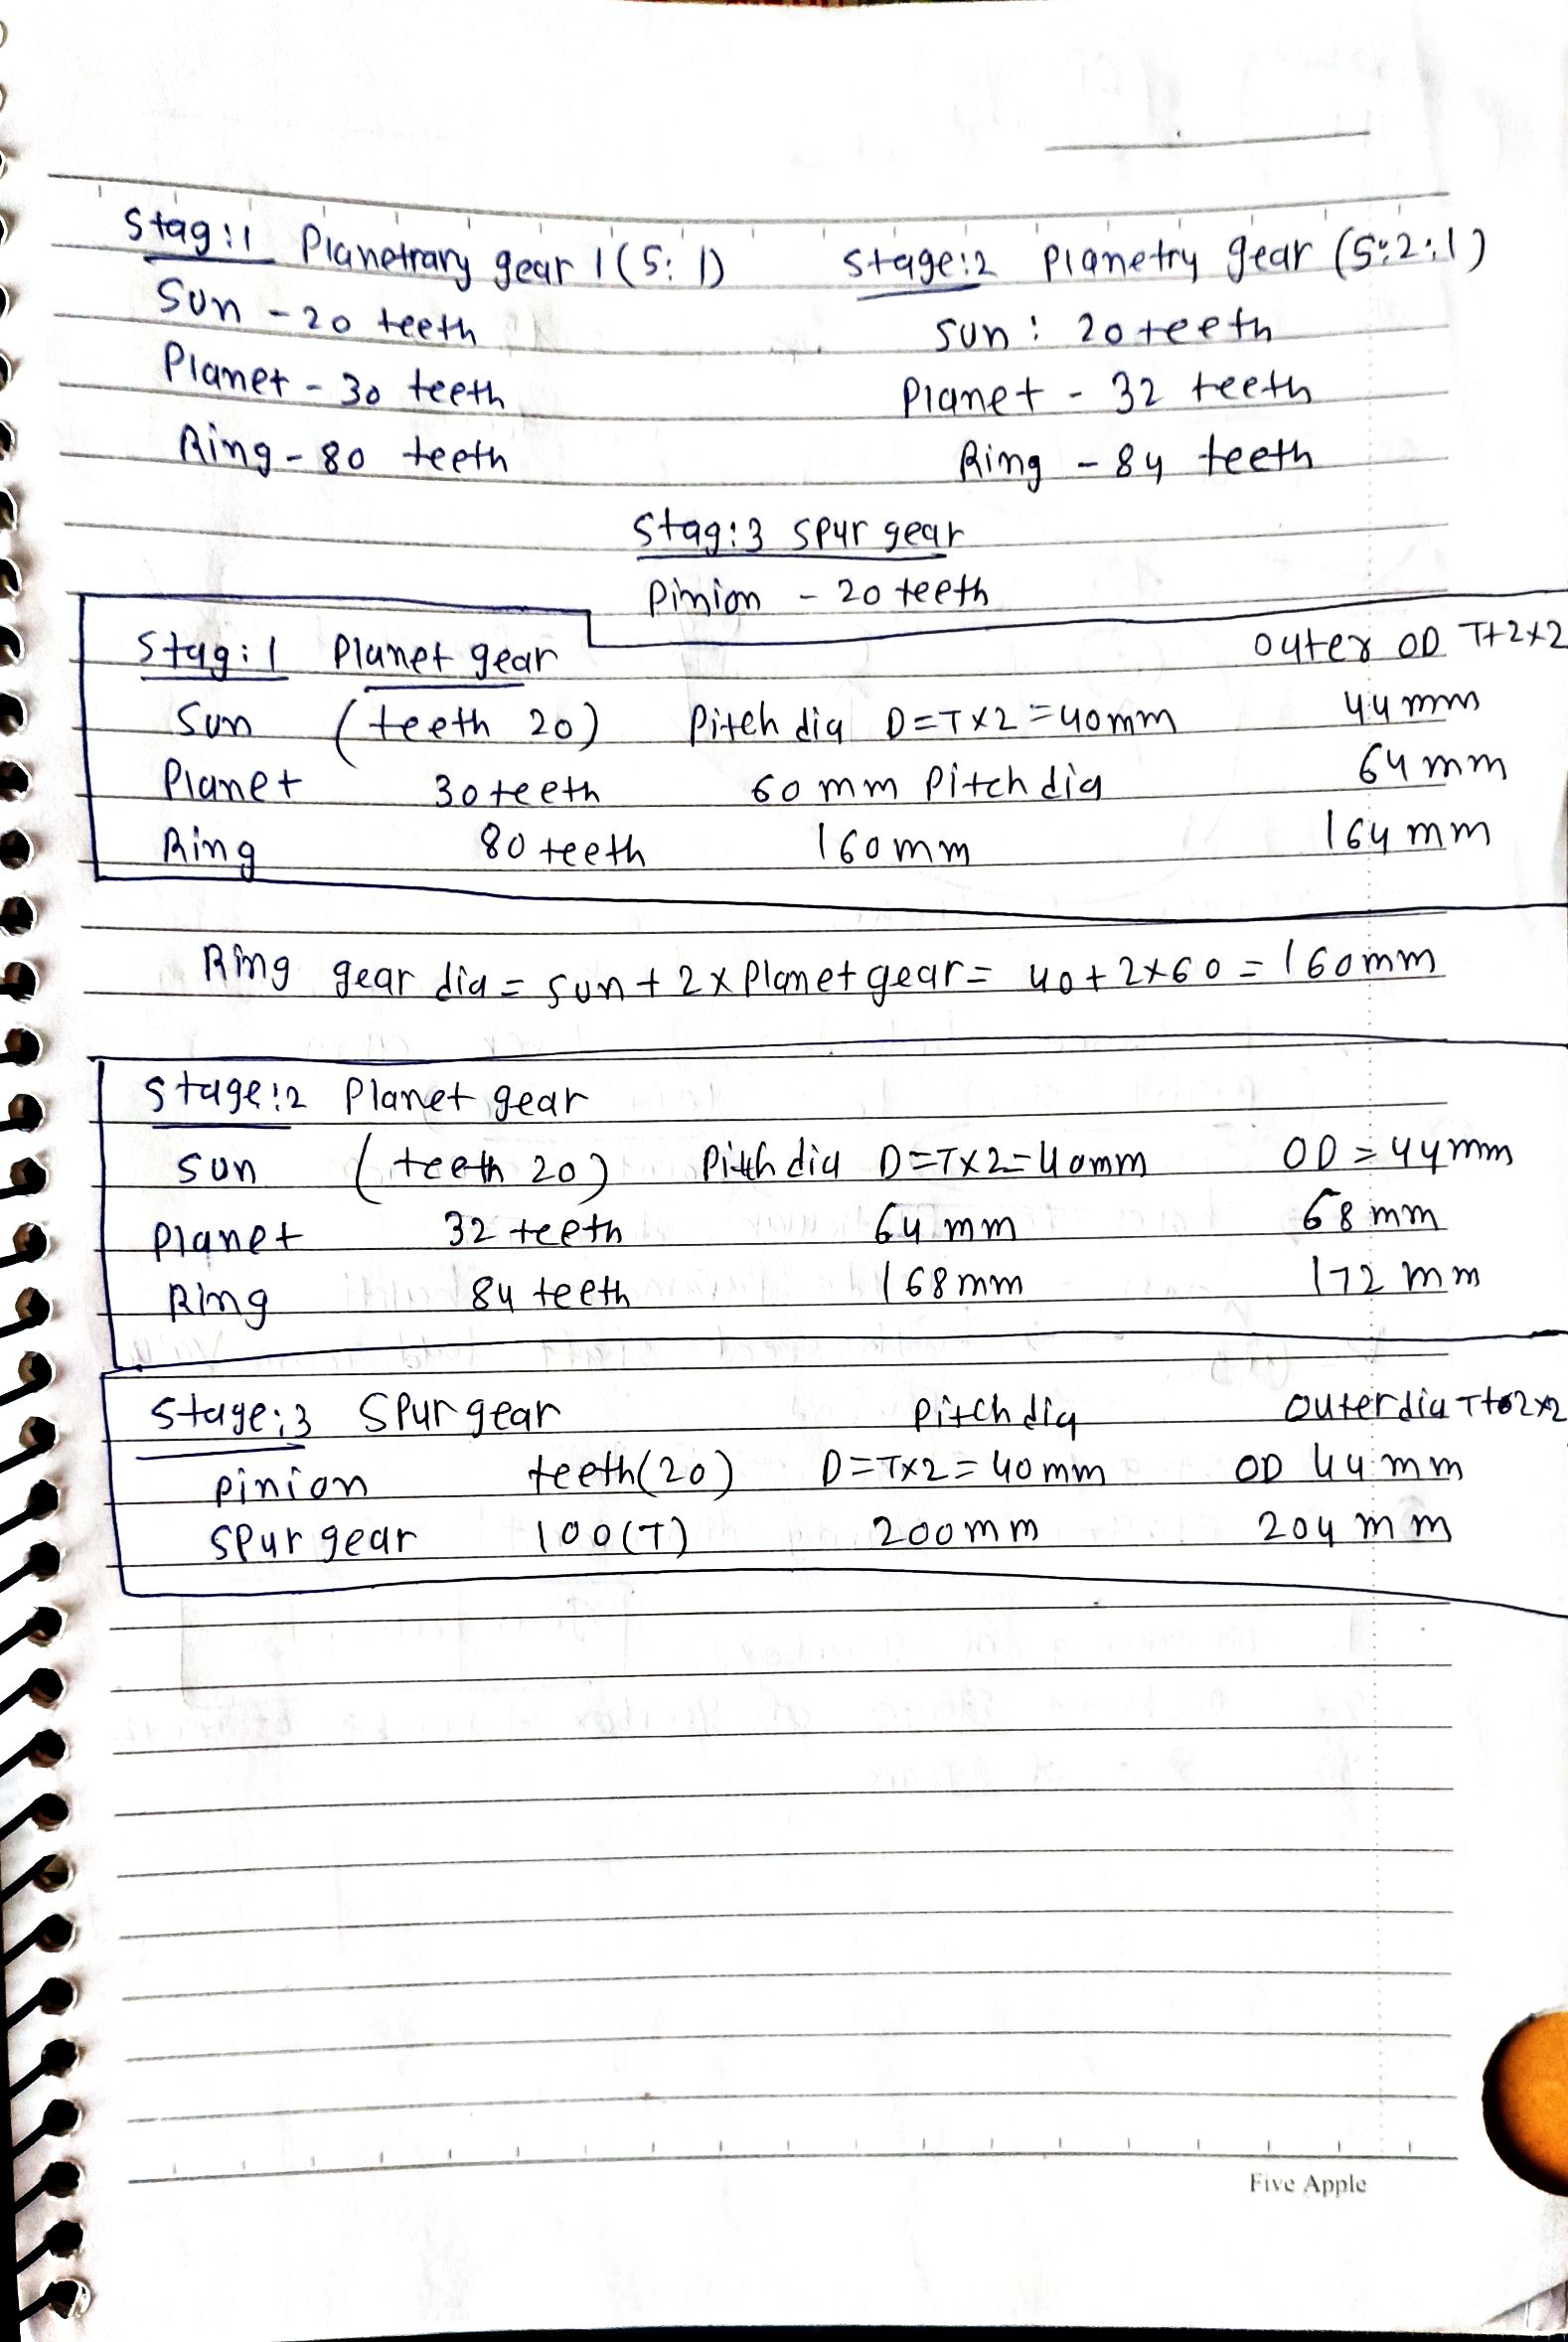 Stag:1 Planetrary gear 1(5:1) Stage:2 Planetry gear (5:2:1)
Sun - 20 teeth sun: 20 teeth
Planet - 30 teeth Planet - 32 teeth
Ring - 80 teeth Ring - 84 teeth
Stag:3 Spur gear
Pinion - 20 teeth
Stag:1 Planet gear outer OD T+2×2
Sun (teeth 20) Pitch dia D=T×2=40mm 44 mm
Planet 30 teeth 60 mm Pitch dia 64 mm
Ring 80 teeth 160mm 164 mm
Ring gear dia = sun + 2×Planet gear = 40+2×60=160mm
Stage:2 Planet gear
Sun (teeth 20) Pitch dia D=T×2=40mm OD = 44mm
Planet 32 teeth 64 mm 68 mm
Ring 84 teeth 168mm 172 mm
Stage:3 Spur gear Pitch dia outer dia
pinion teeth(20) D=T×2=40mm OD 44 mm
Spur gear 100(T) 200mm 204 mm
Five Apple